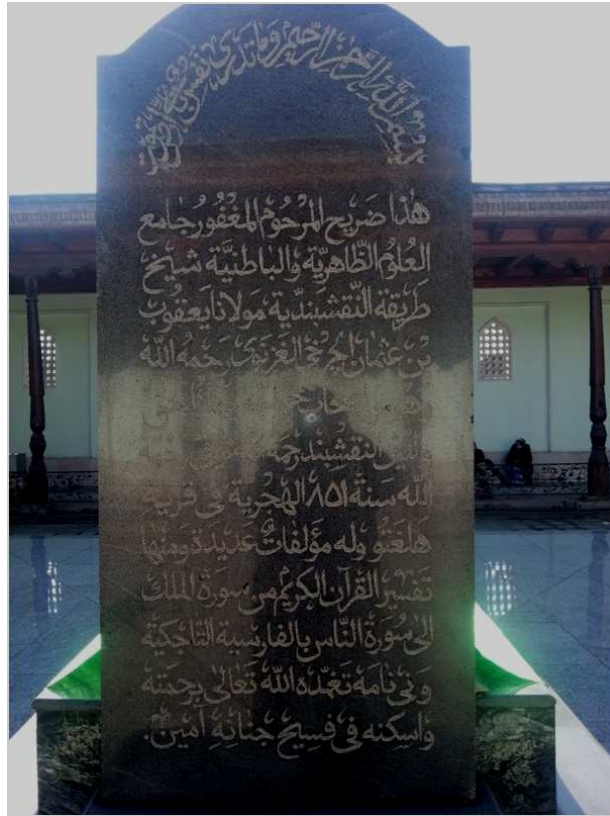 بسم الله الرحمن الرحيم وما تدري نفس بأي أرض تموت
هذا ضريح المرحوم المغفور جامع
العلوم الظاهرية والباطنية شيخ
طريقة النقشبندية مولانا يعقوب
بن عثمان الجرخي الغزنوي رحمه الله
النقشبند
الله سنة ٨٥١ الهجرية في قرية
هلغتو وله مؤلفات عديدة ومنها
تفسير القرآن الكريم من سورة الملك
الى سورة الناس بالفارسية التاجكية
وني نامه تغمده الله تعالى برحمته
واسكنه في فسيح جنانه امين.